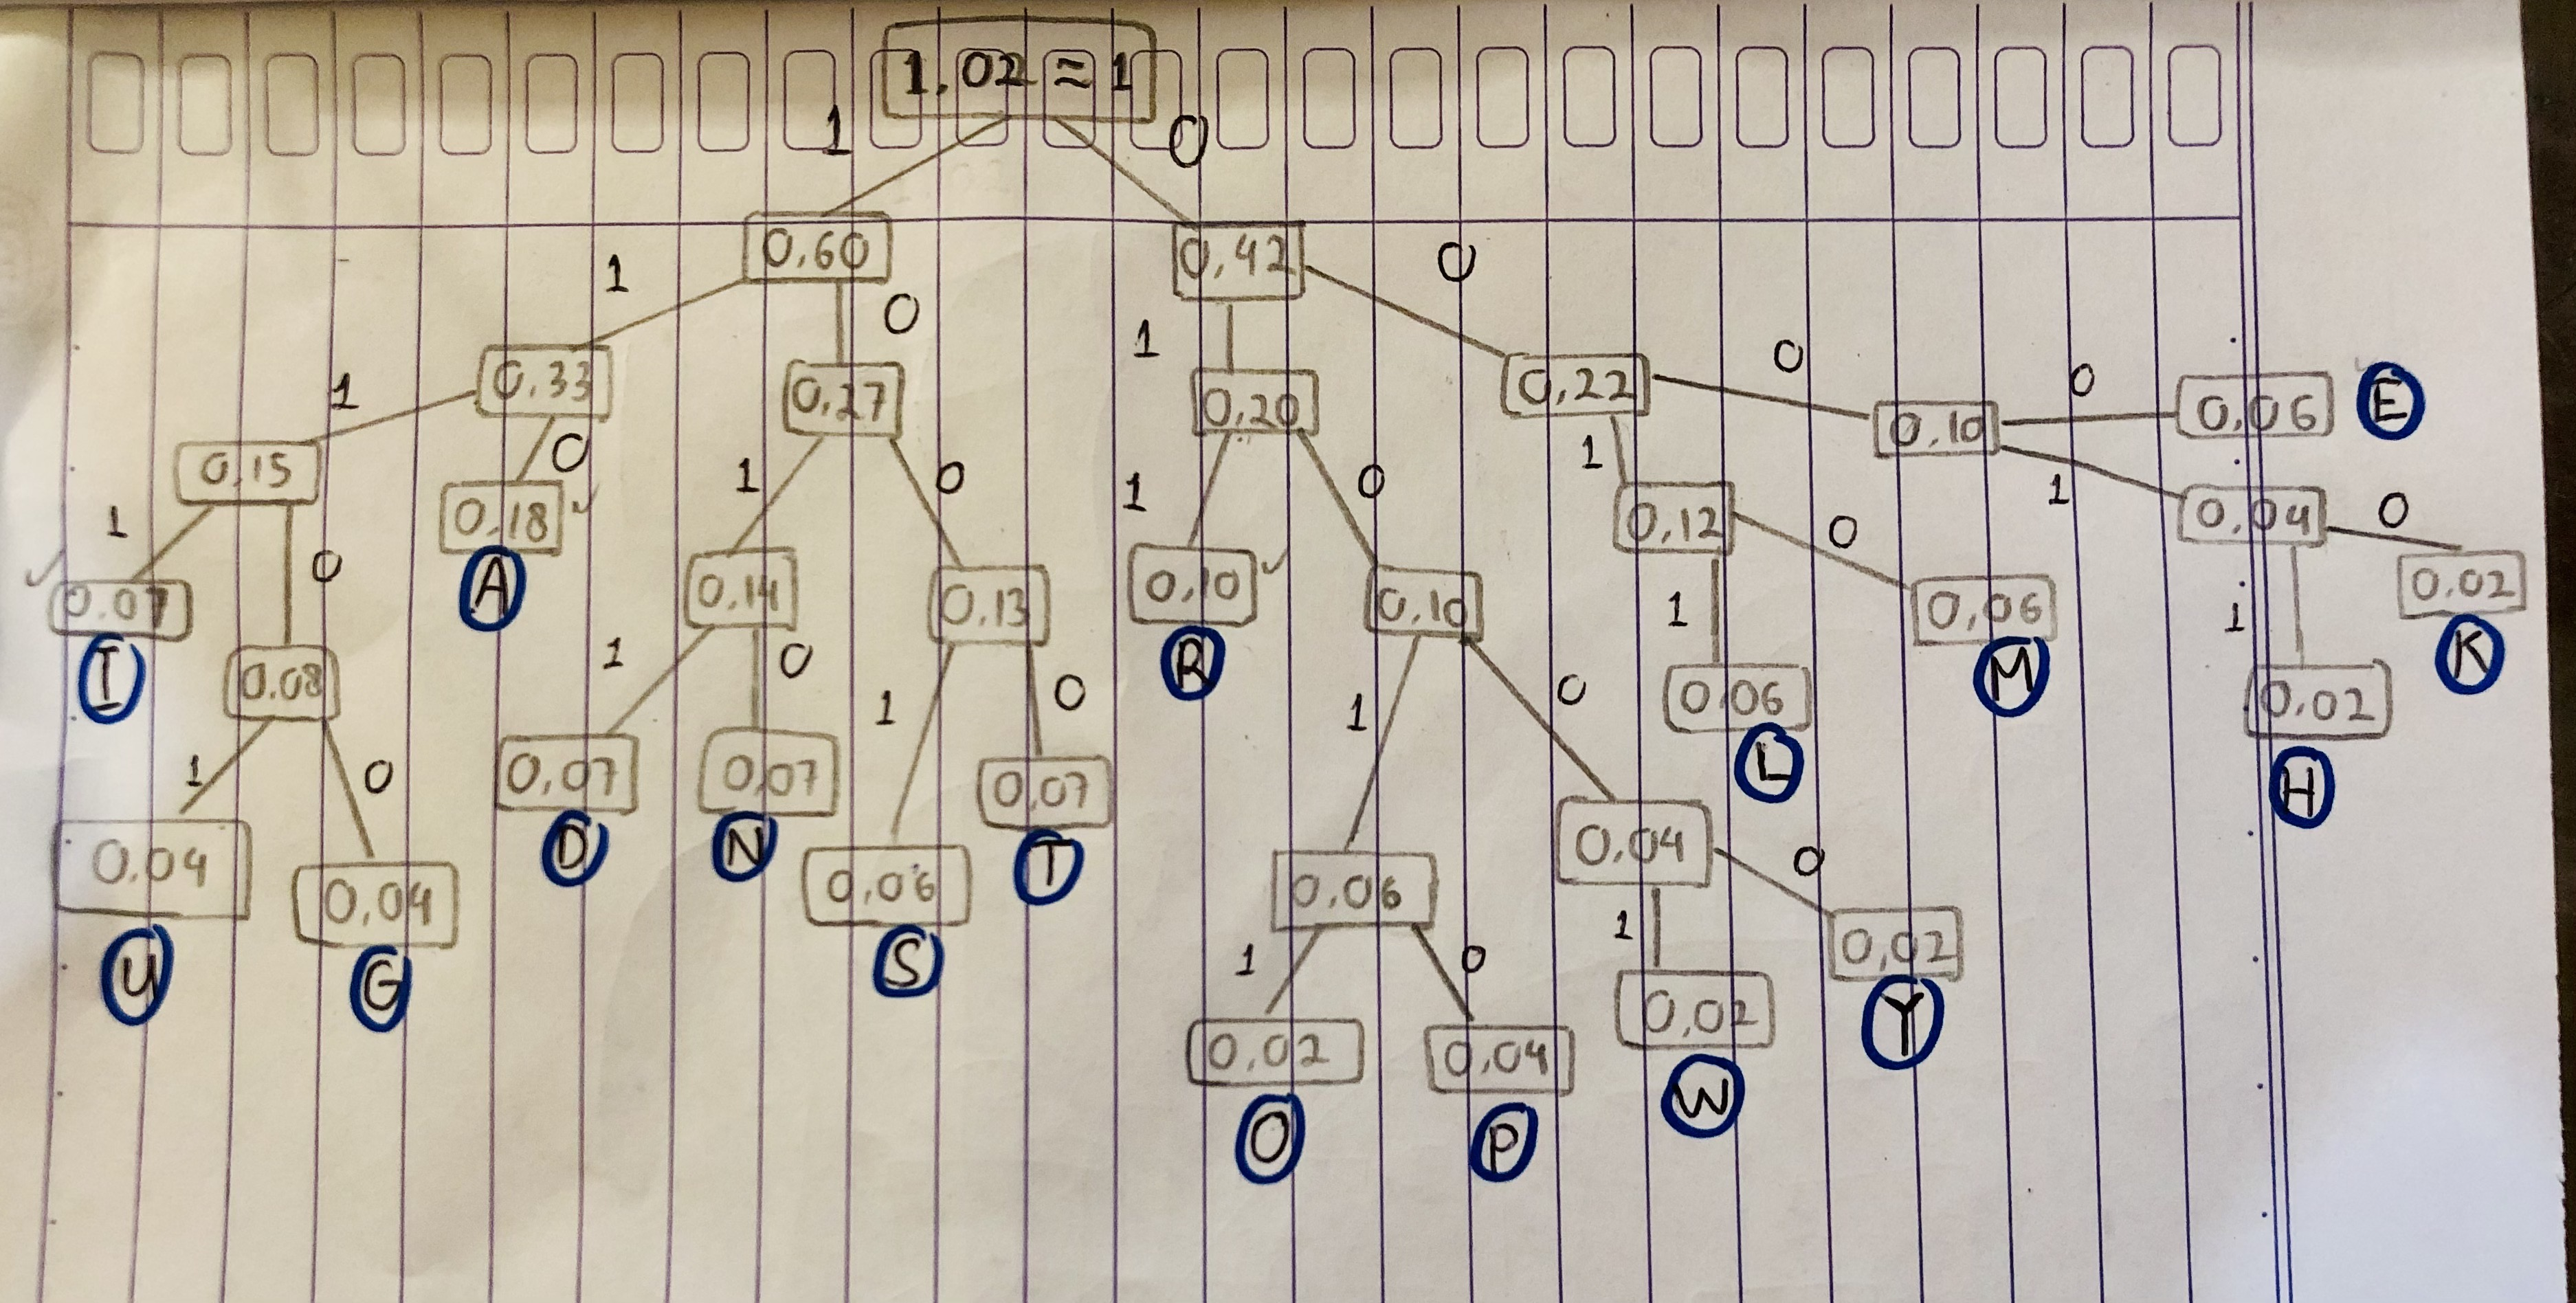 1.02 ≈ 1
1 0
0.60 0.42
1 0 1 0
0.33 0.27 0.20 0.22
1 0 1 0 1 0 1 0
0.15 0.18 0.14 0.13 0.10 0.10 0.12 0.10
A R
1 0 1 0 1 0 1 0 1 0 0 1
0.07 0.08 0.07 0.07 0.06 0.07 0.06 0.04 0.06 0.06 0.06 0.04
I D N S T L M E
1 0 1 0 1 0 1 0
0.04 0.04 0.02 0.04 0.02 0.02 0.02 0.02
U G O P W Y H K